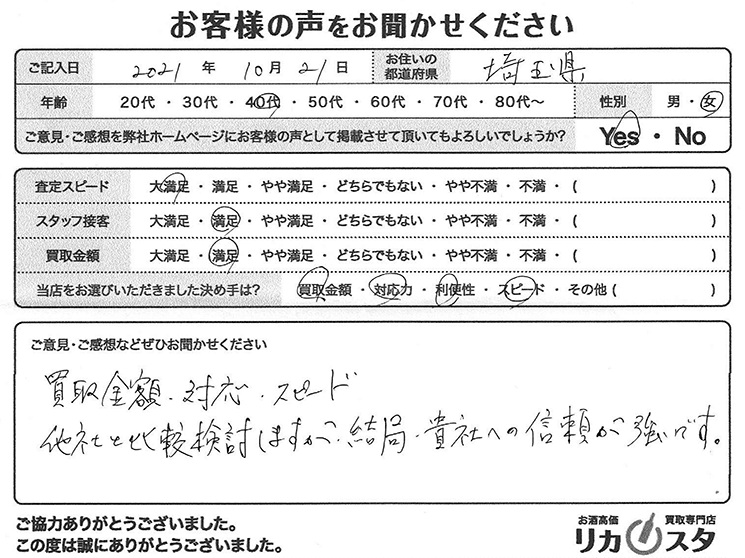 お客様の声をお聞かせください
ご記入日 2021 年 10 月 21 日 お住いの都道府県 埼玉県
年齢 20代 ・ 30代 ・ 40代 ・ 50代 ・ 60代 ・ 70代 ・ 80代〜 性別 男 ・ 女
ご意見・ご感想を弊社ホームページにお客様の声として掲載させて頂いてもよろしいでしょうか? Yes ・ No
査定スピード 大満足 ・ 満足 ・ やや満足 ・ どちらでもない ・ やや不満 ・ 不満 ・ ( )
スタッフ接客 大満足 ・ 満足 ・ やや満足 ・ どちらでもない ・ やや不満 ・ 不満 ・ ( )
買取金額 大満足 ・ 満足 ・ やや満足 ・ どちらでもない ・ やや不満 ・ 不満 ・ ( )
当店をお選びいただきました決め手は? 買取金額 ・ 対応力 ・ 利便性 ・ スピード ・ その他 ( )
ご意見・ご感想などぜひお聞かせください
買取金額・対応・スピード
他社と比較検討しますが、結局、貴社への信頼が強いです。
ご協力ありがとうございました。
この度は誠にありがとうございました。
お酒高価 買取専門店
リカスタ